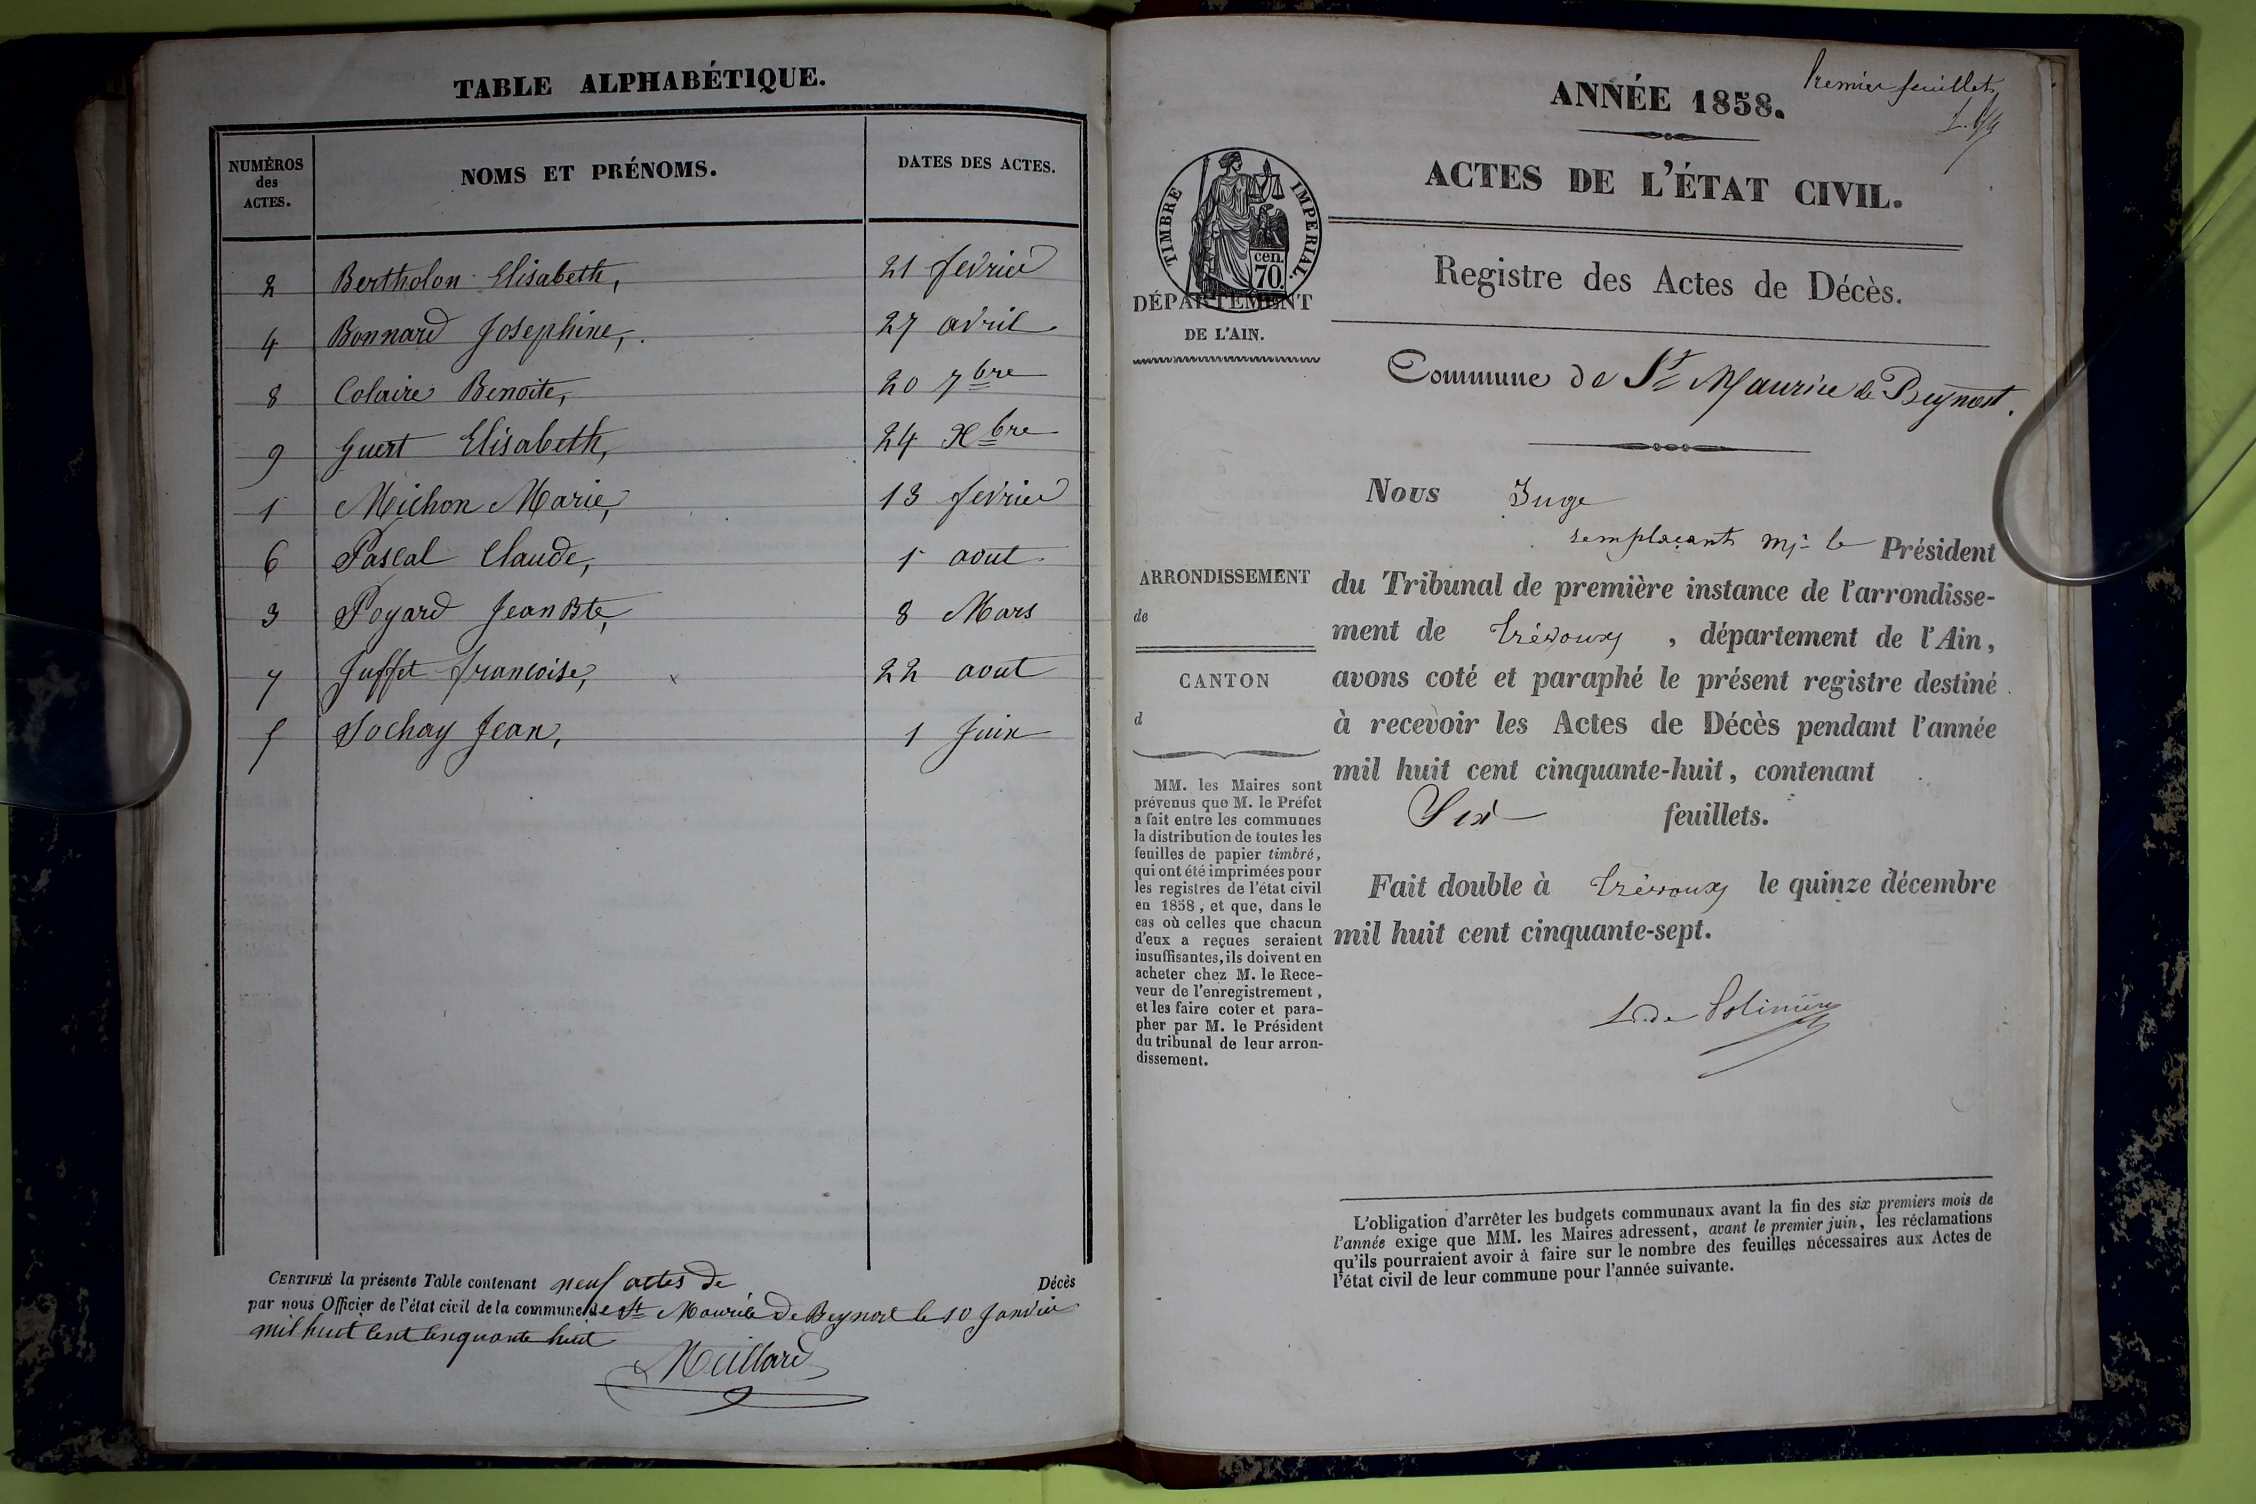 TABLE ALPHABÉTIQUE.
NUMÉROS des ACTES.
NOMS ET PRÉNOMS.
DATES DES ACTES.
2 Bertholon Elisabeth, 21 fevrier
4 Bonnard Josephine, 27 avril
8 Colaire Benoite, 20 7bre
9 Guert Elisabeth, 24 Xbre
1 Michon Marie, 13 fevrier
6 Pascal Claude, 1 aout
3 Poyard Jean Bte, 8 Mars
7 Juffet francoise, 22 aout
5 Sochay Jean, 1 Juin
CERTIFIÉ la présente Table contenant neuf actes de Décès
par nous Officier de l'état civil de la commune de St Maurice de Beynost le 10 Janvier
mil huit cent cinquante huit
Meillard
Premier feuillet
ANNÉE 1858.
ACTES DE L'ÉTAT CIVIL.
TIMBRE IMPERIAL.
cen.
70.
DÉPARTEMENT
DE L'AIN.
Registre des Actes de Décès.
Commune de St Maurice de Beynost.
ARRONDISSEMENT
de
CANTON
d
MM. les Maires sont
prévenus que M. le Préfet
a fait entre les communes
la distribution de toutes les
feuilles de papier timbré,
qui ont été imprimées pour
les registres de l'état civil
en 1858, et que, dans le
cas où celles que chacun
d'eux a reçues seraient
insuffisantes, ils doivent en
acheter chez M. le Rece-
veur de l'enregistrement,
et les faire coter et para-
pher par M. le Président
du tribunal de leur arron-
dissement.
Nous Juge
remplaçant Mr le Président
du Tribunal de première instance de l'arrondisse-
ment de Trévoux, département de l'Ain,
avons coté et paraphé le présent registre destiné
à recevoir les Actes de Décès pendant l'année
mil huit cent cinquante-huit, contenant
Six feuillets.
Fait double à Trévoux le quinze décembre
mil huit cent cinquante-sept.
L'obligation d'arrêter les budgets communaux avant la fin des six premiers mois de
l'année exige que MM. les Maires adressent, avant le premier juin, les réclamations
qu'ils pourraient avoir à faire sur le nombre des feuilles nécessaires aux Actes de
l'état civil de leur commune pour l'année suivante.